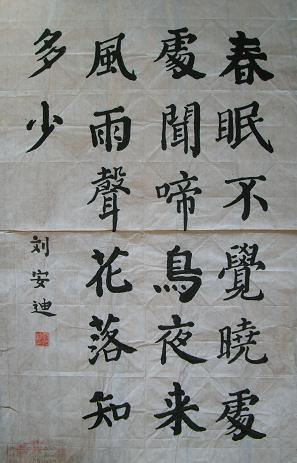 春眠不覺曉處
處聞啼鳥夜来
風雨聲花落知
多少
刘安迪